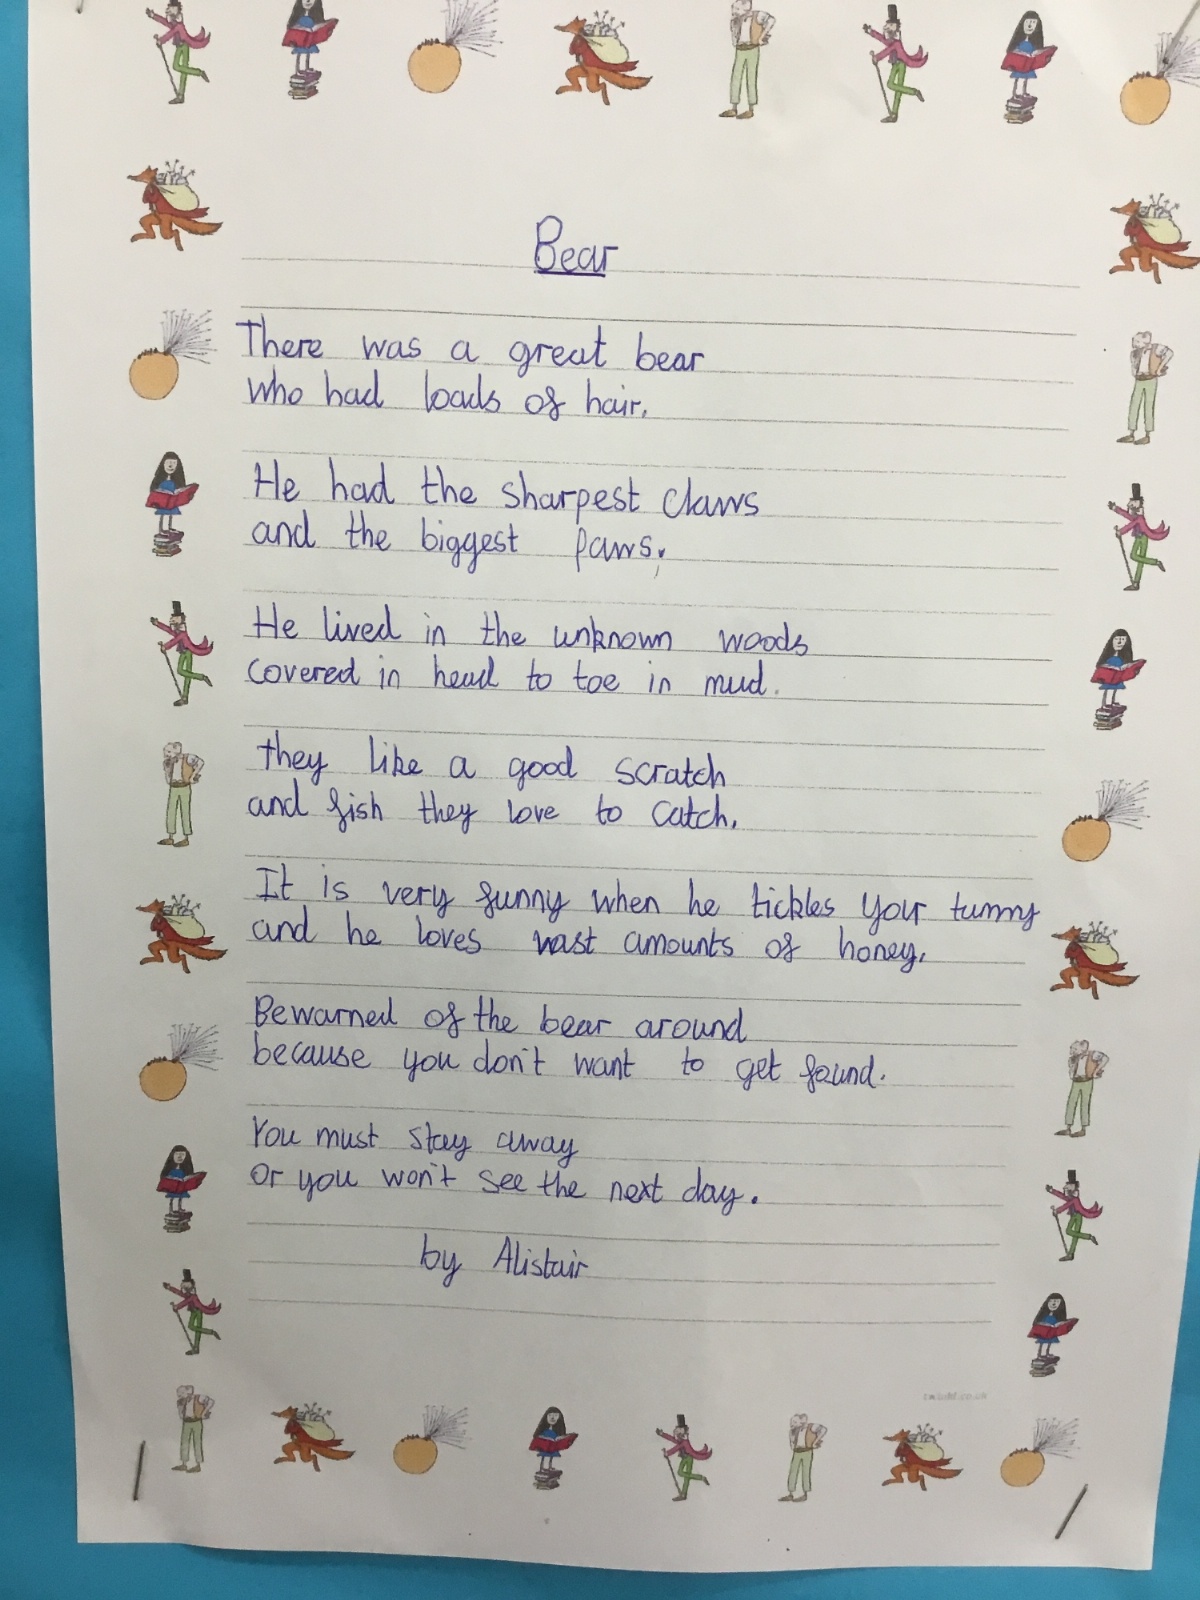 Bear
There was a great bear
who had loads of hair.
He had the sharpest claws
and the biggest paws.
He lived in the unknown woods
covered in head to toe in mud.
they like a good scratch
and fish they love to catch.
It is very funny when he tickles your tummy
and he loves vast amounts of honey.
Bewarned of the bear around
because you don't want to get found.
You must stay away
or you won't see the next day.
by Alistair